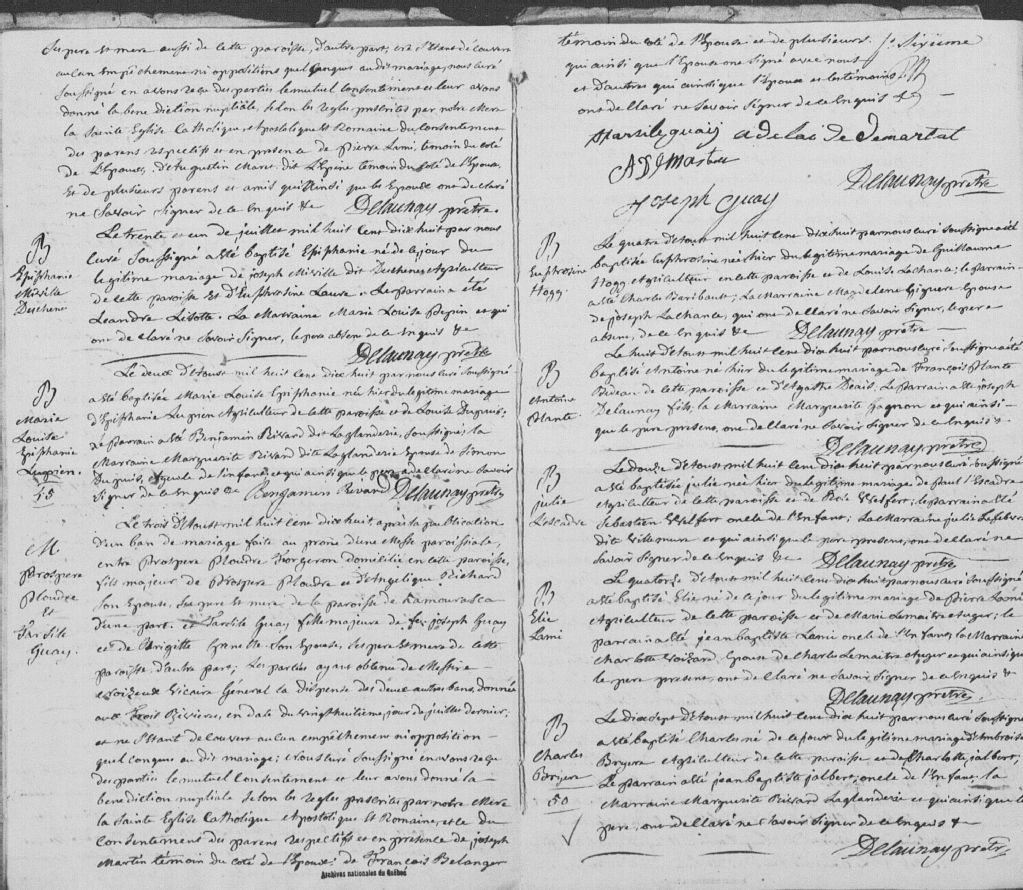 Ses pere et mere aussi de cette paroisse, d'autre part; et ne s'etant decouvert
aucun empêchement ni oppositions quelconques audit mariage, nous curé
soussigné en avons reçu des parties le mutuel consentement et leur avons
donné la benediction nuptiale, selon les regles prescrites par notre Mere
la Sainte Eglise Catholique et Apostolique et Romaine du consentement
des parens respectifs et en presence de Pierre Lami, temoin du coté
de l'Epoux, d'Augustin Maret dit l'Epine temoin du coté de l'Epouse
et de plusieurs parens et amis qui ainsi que les Epoux ont declaré
ne savoir signer de ce enquis &e Delaunay prêtre.
Le trente et un de juillet mil huit cent dix huit par nous
B
curé soussigné a été baptisé Epiphanie né de ce jour du
Epiphanie
Miville
Deschene
legitime mariage de joseph Miville dit Dechene, Agriculteur
de cette paroisse et d'Euphrosine Laure. Le parrain a été
Leandre Lisotte. La Marraine Marie Louise Pepin et qui
ont declaré ne savoir signer, le pere absent de ce enquis &e
Delaunay prêtre
Le deux d'Etoust mil huit cent dix huit par nous curé soussigné
B
Marie
Louise
Epiphanie
Lupien.
55
a été baptisée Marie Louise Epiphanie née hier du legitime mariage
d'Epiphanie Lupien Agriculteur de cette paroisse et de Louise Dupuis;
Le parrain a été Benjamin Rivard dit Laglanderie, soussigné; la
Marraine Marguerite Rivard dit Laglanderie Epouse de Simon
Dupuis, Ayeule de l'enfant, et qui ainsi que le pere a declaré ne savoir
signer de ce enquis &e Bengamin Rivard Delaunay prêtre
Le trois d'Etoust mil huit cent dix huit après la publication
M
Prospere
Ploudre
et
Tarsile
Guay.
d'un ban de mariage faite au prone d'une Messe paroissiale,
entre Prospere Ploudre Forgeron domicilié en cette paroisse,
fils majeur de Prospere Ploudre et d'Angelique Richard
son Epouse, ses pere et mere de la paroisse de Kamouraska
d'une part. et Tarsile Guay fille majeure de feu joseph Guay
et de Brigitte son Epouse, ses pere et mere de cette
paroisse d'autre part; Les parties ayant obtenu de Messire
Noizeux Vicaire Général la dispense des deux autres bans, donnée
aux Trois Rivieres, en date du vingt huitieme jour de juillet dernier;
et ne s'etant decouvert aucun empêchement ni opposition
quelconques audit mariage; Nous curé soussigné en avons reçu
des parties le mutuel consentement et leur avons donné la
benediction nuptiale selon les regles prescrites par notre Mere
la Sainte Eglise Catholique Apostolique et Romaine, et le du
consentement des parens respectifs et en presence de joseph
Martin temoin du coté de l'Epoux; de François Belanger
Archives nationales du Québec
témoin du coté de l'Epouse et de plusieurs
qui ainsi que l'Epouse ont signé avec nous
et d'autres qui ainsi que l'Epoux et les temoins
ont declaré ne savoir signer de ce enquis &e
Marsile guay adelai de demartat
Joseph Guay
Delaunay prêtre
Le quatre d'Etoust mil huit cent dix huit par nous curé soussigné a été
B
Euphrosine
Hogg.
baptisée Euphrosine née hier du legitime mariage de Guillaume
Hogg Agriculteur en cette paroisse et de Louise Lachance; le parrain
a été Charles Baribeau; la Marraine Magdelene Giguere Epouse
de joseph Lachance, qui ont declaré ne savoir signer, le pere
absent, de ce enquis &e Delaunay prêtre
Le huit d'Etoust mil huit cent dix huit par nous curé soussigné a été
B
Antoine
Plante.
baptisé Antoine né hier du legitime mariage de François Plante
Bedeau de cette paroisse et d'Agathe. Le parrain a été joseph
Delaunay fils, la Marraine Marguerite Gagnon et qui ainsi
que le pere present, ont declaré ne savoir signer de ce enquis &
Delaunay prêtre
Le douze d'Etoust mil huit cent dix huit par nous curé soussigné
B
julie
Lescadre
a été baptisée julie née hier du legitime mariage de Paul l'Escadre
Agriculteur de cette paroisse et de; le parrain a été
Sebastien oncle de l'Enfant; la Marraine julie Lefebvre
dit Villemure et qui ainsi que le pere present, ont declaré ne
savoir signer de ce enquis &e Delaunay prêtre
Le quatorze d'Etoust mil huit cent dix huit par nous curé soussigné
B
Elie
Lami
a été baptisé Elie né de ce jour du legitime mariage de Pierre Lami
Agriculteur de cette paroisse et de Marie Lemaitre Auger, le
parrain a été jean baptiste Lami oncle de l'Enfant; la Marraine
Charlotte Voisard, Epouse de Charles Lemaitre Auger et qui ainsi que
le pere present, ont declaré ne savoir signer de ce enquis &
Delaunay prêtre.
Le dix sept d'Etoust mil huit cent dix huit par nous curé soussigné
B
Charles
50
a été baptisé Charles né de ce jour du legitime mariage d'Ambroise
Agriculteur de cette paroisse et de Charlotte jalbert;
Le parrain a été jean baptiste jalbert, oncle de l'Enfant; la
Marraine Marguerite Rivard Laglanderie et qui ainsi que le
pere, ont declaré ne savoir signer de ce enquis &e
Delaunay prêtre